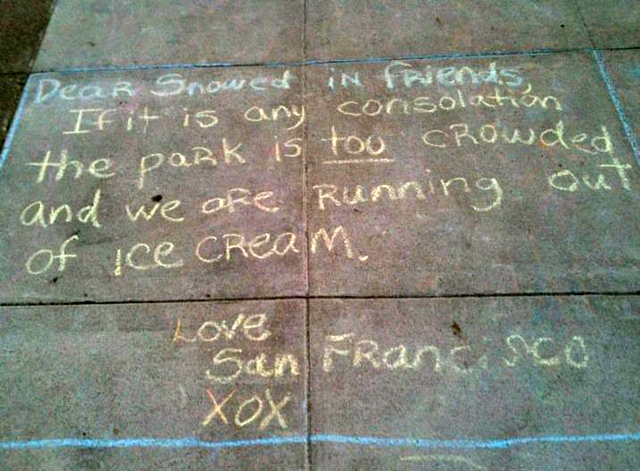 Dear Snowed in friends,
If it is any consolation
the park is too crowded
and we are running out
of ice cream.
Love
San Francisco
XOX